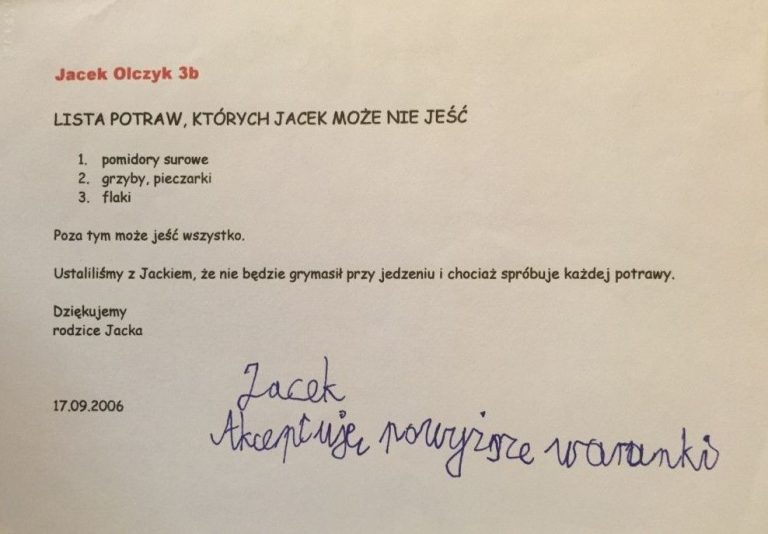 Jacek Olczyk 3b
LISTA POTRAW, KTÓRYCH JACEK MOŻE NIE JEŚĆ
1. pomidory surowe
2. grzyby, pieczarki
3. flaki
Poza tym może jeść wszystko.
Ustaliliśmy z Jackiem, że nie będzie grymasił przy jedzeniu i chociaż spróbuje każdej potrawy.
Dziękujemy
rodzice Jacka
Jacek
17.09.2006
Akceptuję powyższe waranki